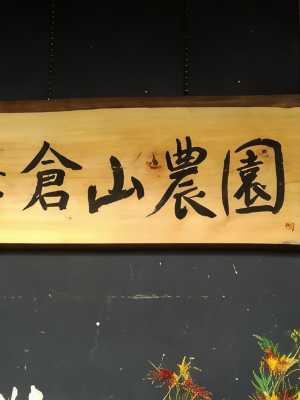 倉山農園